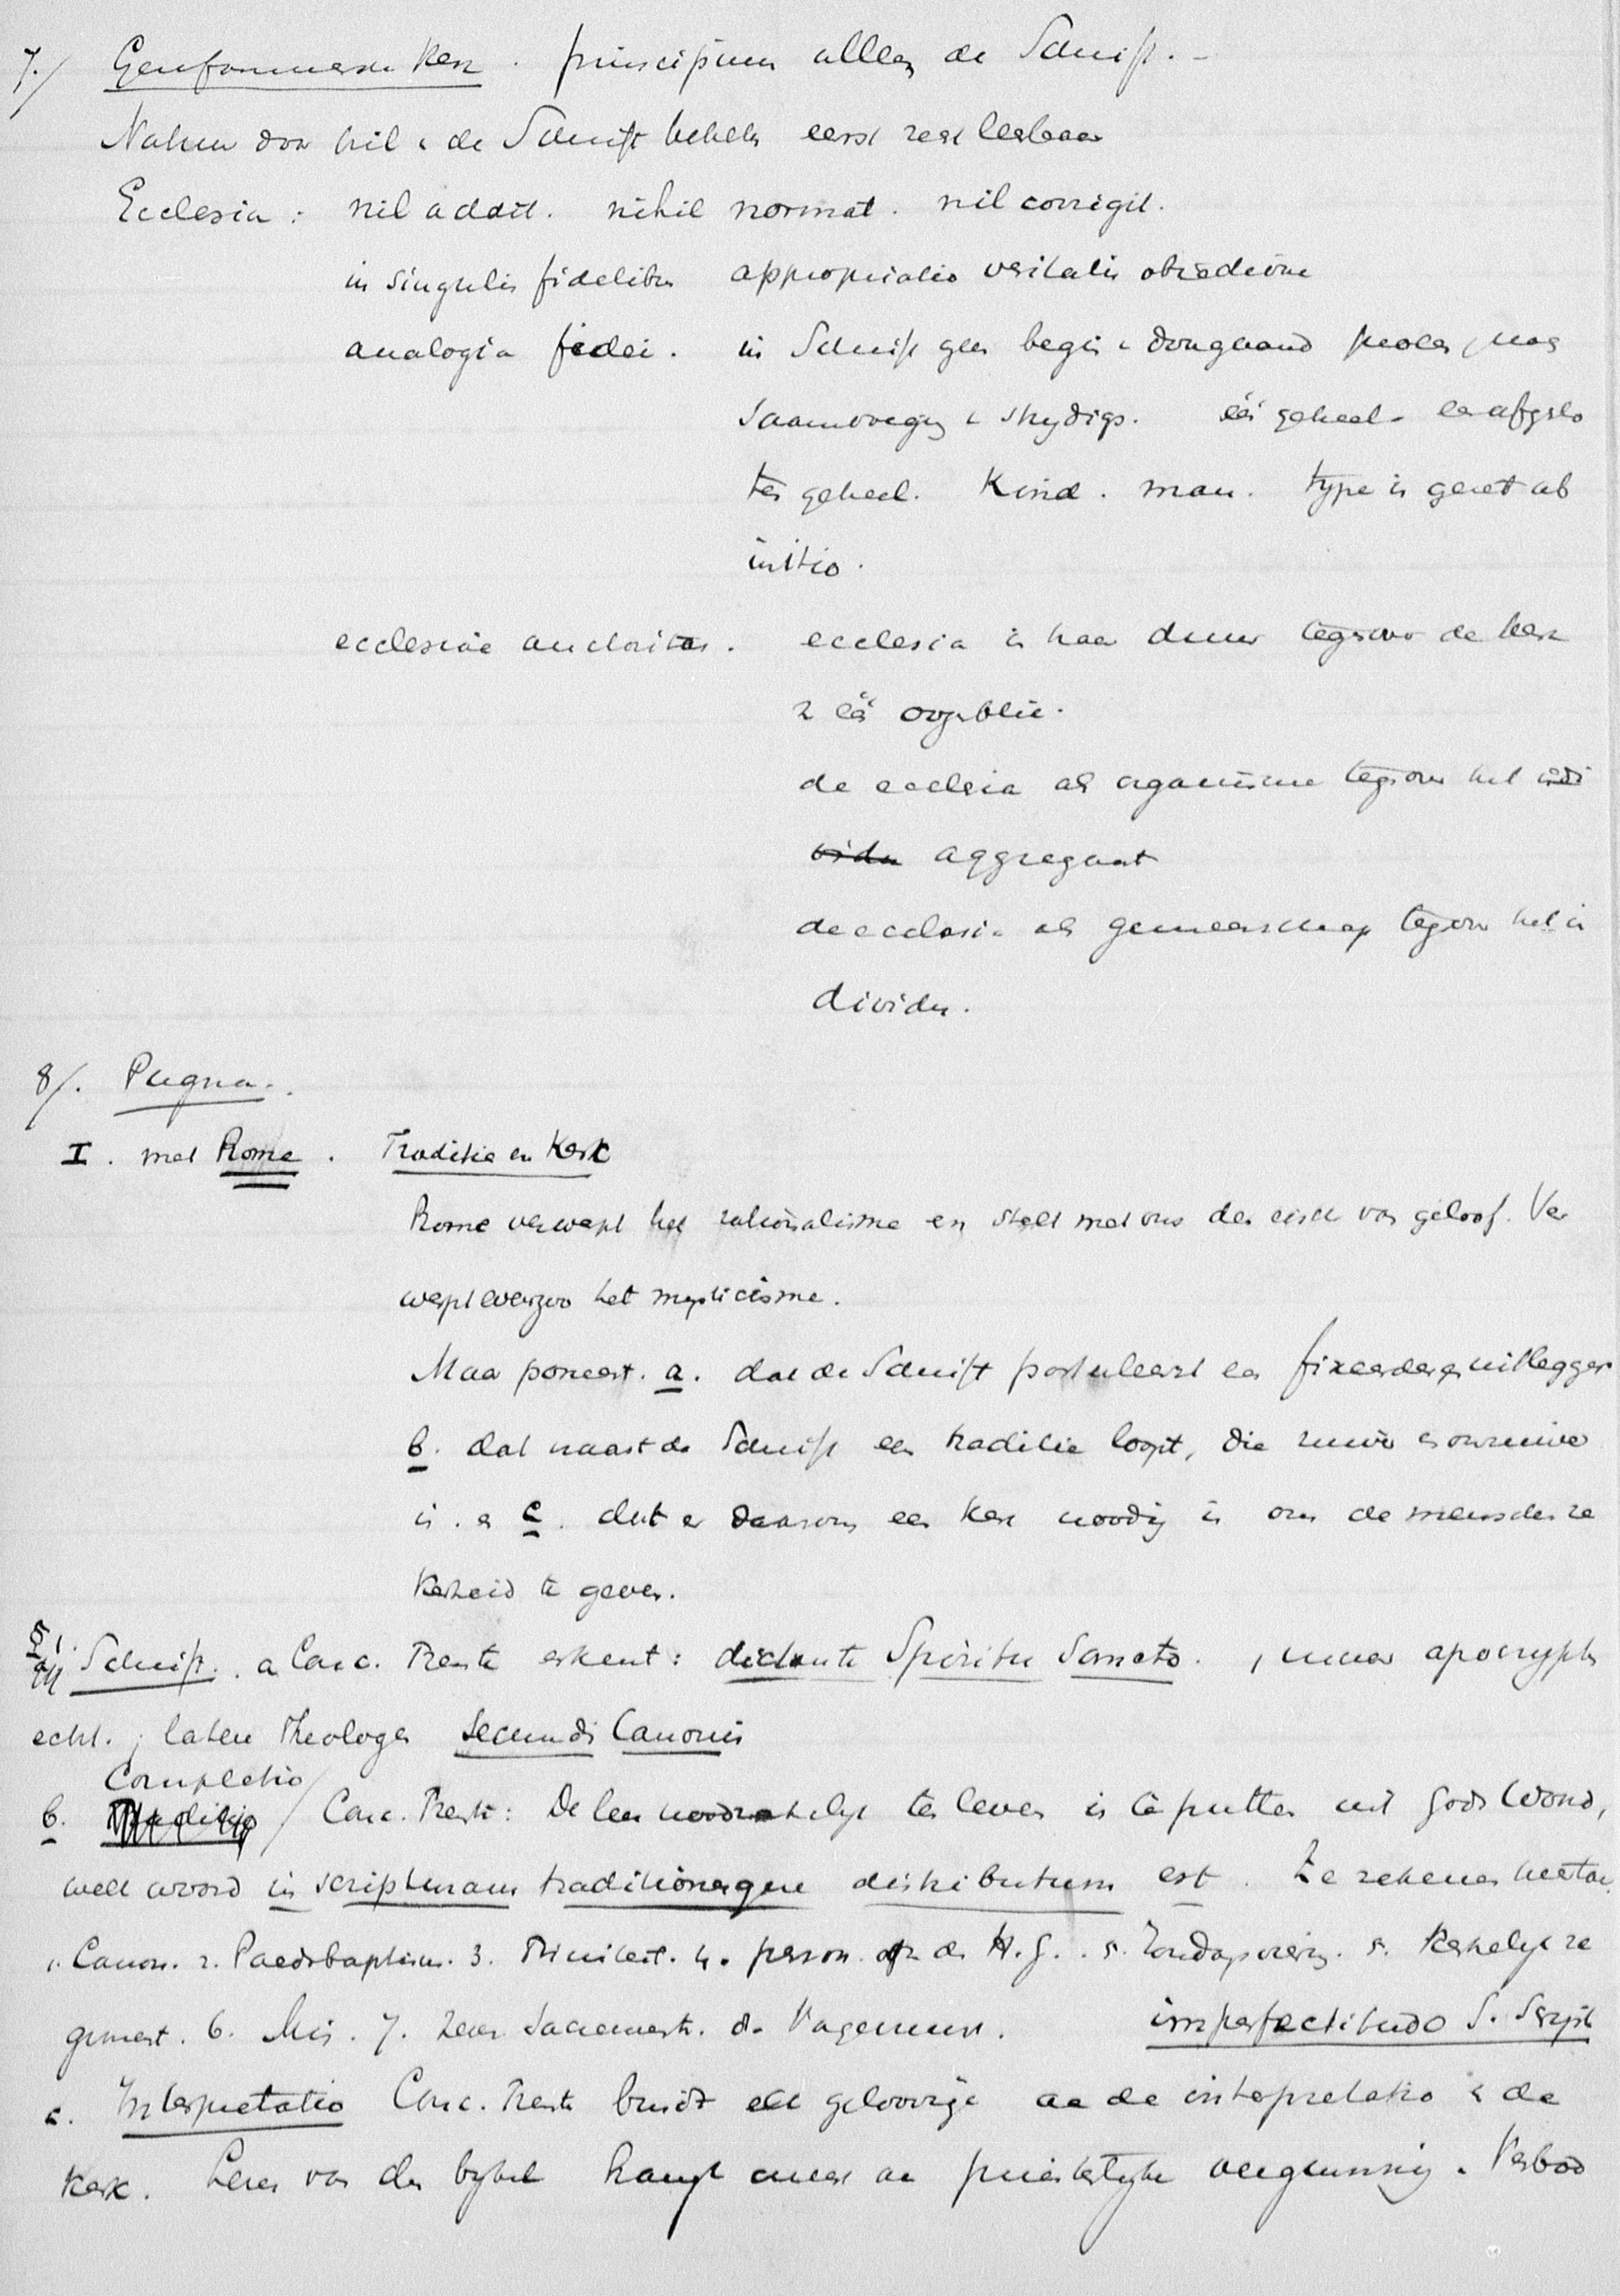 7./ Gereformeerde Kerk. principium alleen de Schrift. –
Natuur door hil & de Schrift behelz eerst rest leesbaar
Ecclesia: nil addit. nihil normat. nil corrigit.
in singulis fidelibus appropriatio veritatis obsedione
analogia fidei. in Schrift geen begin & doorgaand proces, maar
saamvoeging & strydige. één geheel – een afgeslo
ten geheel. Kind. man. type is gezet ab
initio.
ecclesiae auctoritas. ecclesia in haar duur tegenover de kerk
in één oogenblik.
de ecclesia als organisme tegenover het indi
vidu aggregaat
de ecclesia als gemeenschap tegenover het in
dividu.
8/. Pugna.
I. met Rome. Traditie en Kerk
Rome verwerpt het rationalisme en stelt met ons den eisch van geloof. Ver
werpt evenzoo het mysticisme.
Maar poneert. a. dat de Schrift postuleert een fixeerder en uitlegger
b. dat naast de Schrift een traditie loopt, die zuiver en onzuiver
is. en c. dat er daarom een Kerk noodig is om de menschen ze
kerheid te geven.
§1. Schrift. a Conc. Trente erkent: dictante Spiritu Sancto. , maar apocryph
echt. ; latere Theologen secundi Canonis
Completio
b. Traditio / Conc. Trente: De leer noodzakelijk ten leven is te putten uit Gods Woord,
welk woord in scripturam traditionemque distributum est. Ze rekenen hiertoe
1. Canon. 2. Paedobaptism. 3. Triniteit. 4. person. van de H.G.. 5. Zondagviering. 5. Kerkelijk re
giment. 6. Mis. 7. Zeven Sacrament. 8. Vagevuur. imperfectitudo S. Script
c. Interpretatio Conc. Trente bindt elk geloovige aan de interpretatio & de
Kerk. Lezen van den bybel hangt maar aan priesterlyke vergunning. Verbod